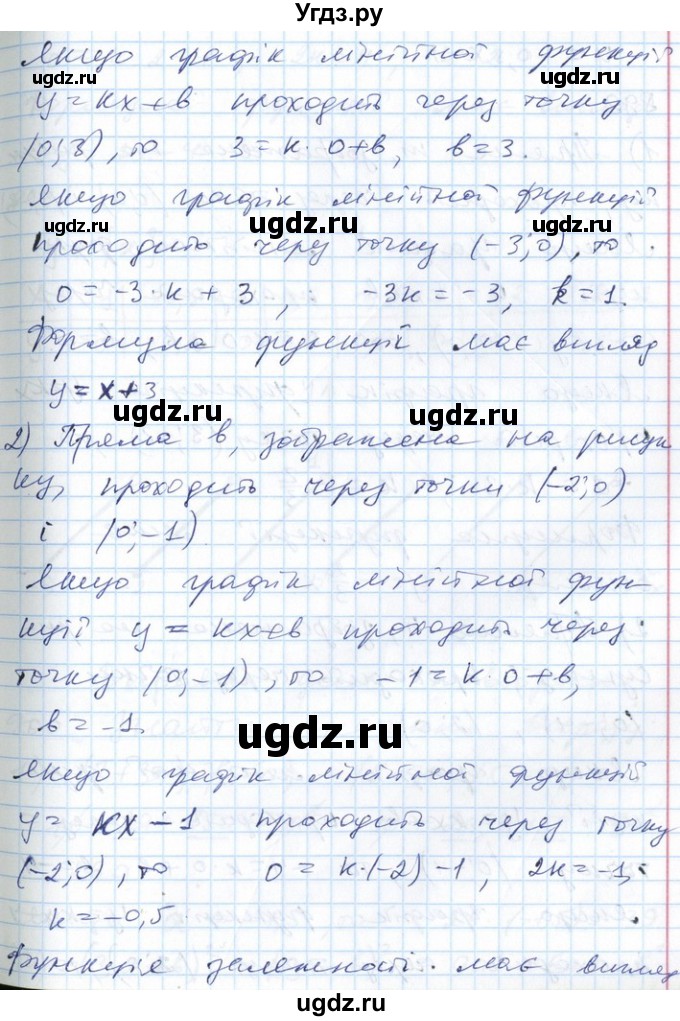 Угдз.ру
Якщо графік лінійної функції
ugdz.ru ugdz.ru
y = kx + b проходить через точку
(0; 3), то 3 = k · 0 + b, b = 3.
ugdz.ru
Якщо графік лінійної функції
ugdz.ru
проходить через точку (-3; 0), то
0 = -3 · k + 3, -3k = -3, k = 1.
ugdz.ru ugdz.ru
Формула функції має вигляд
y = x + 3
ugdz.ru
2) Пряма b, зображена на рисун
ку, проходить через точки (-2; 0)
ugdz.ru
і (0; -1)
ugdz.ru
Якщо графік лінійної фун-
кції y = kx + b проходить через
ugdz.ru
точку (0; -1), то -1 = k · 0 + b,
b = -1.
ugdz.ru
Якщо графік лінійної функції
y = kx - 1 проходить через точку
ugdz.ru ugdz.ru
(-2; 0), то 0 = k · (-2) - 1, 2k = -1,
k = -0,5.
Функція залежності має вигляд
ugdz.ru